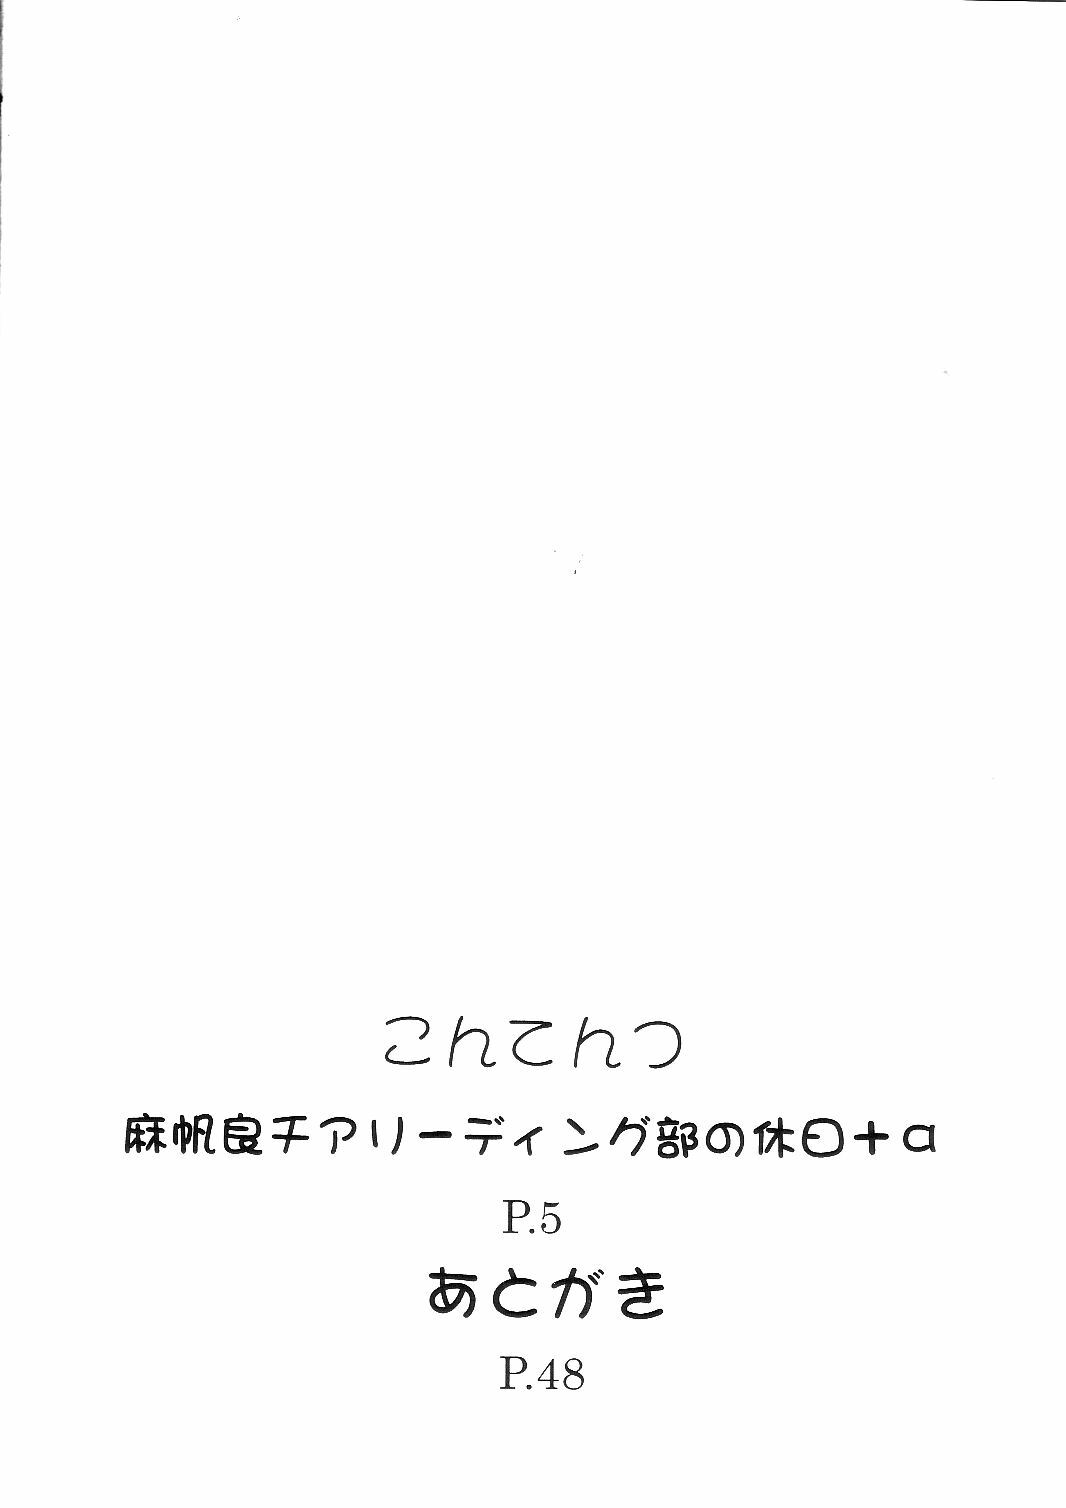 こんてんつ
麻帆良チアリーディング部の休日＋α
P.5
あとがき
P.48